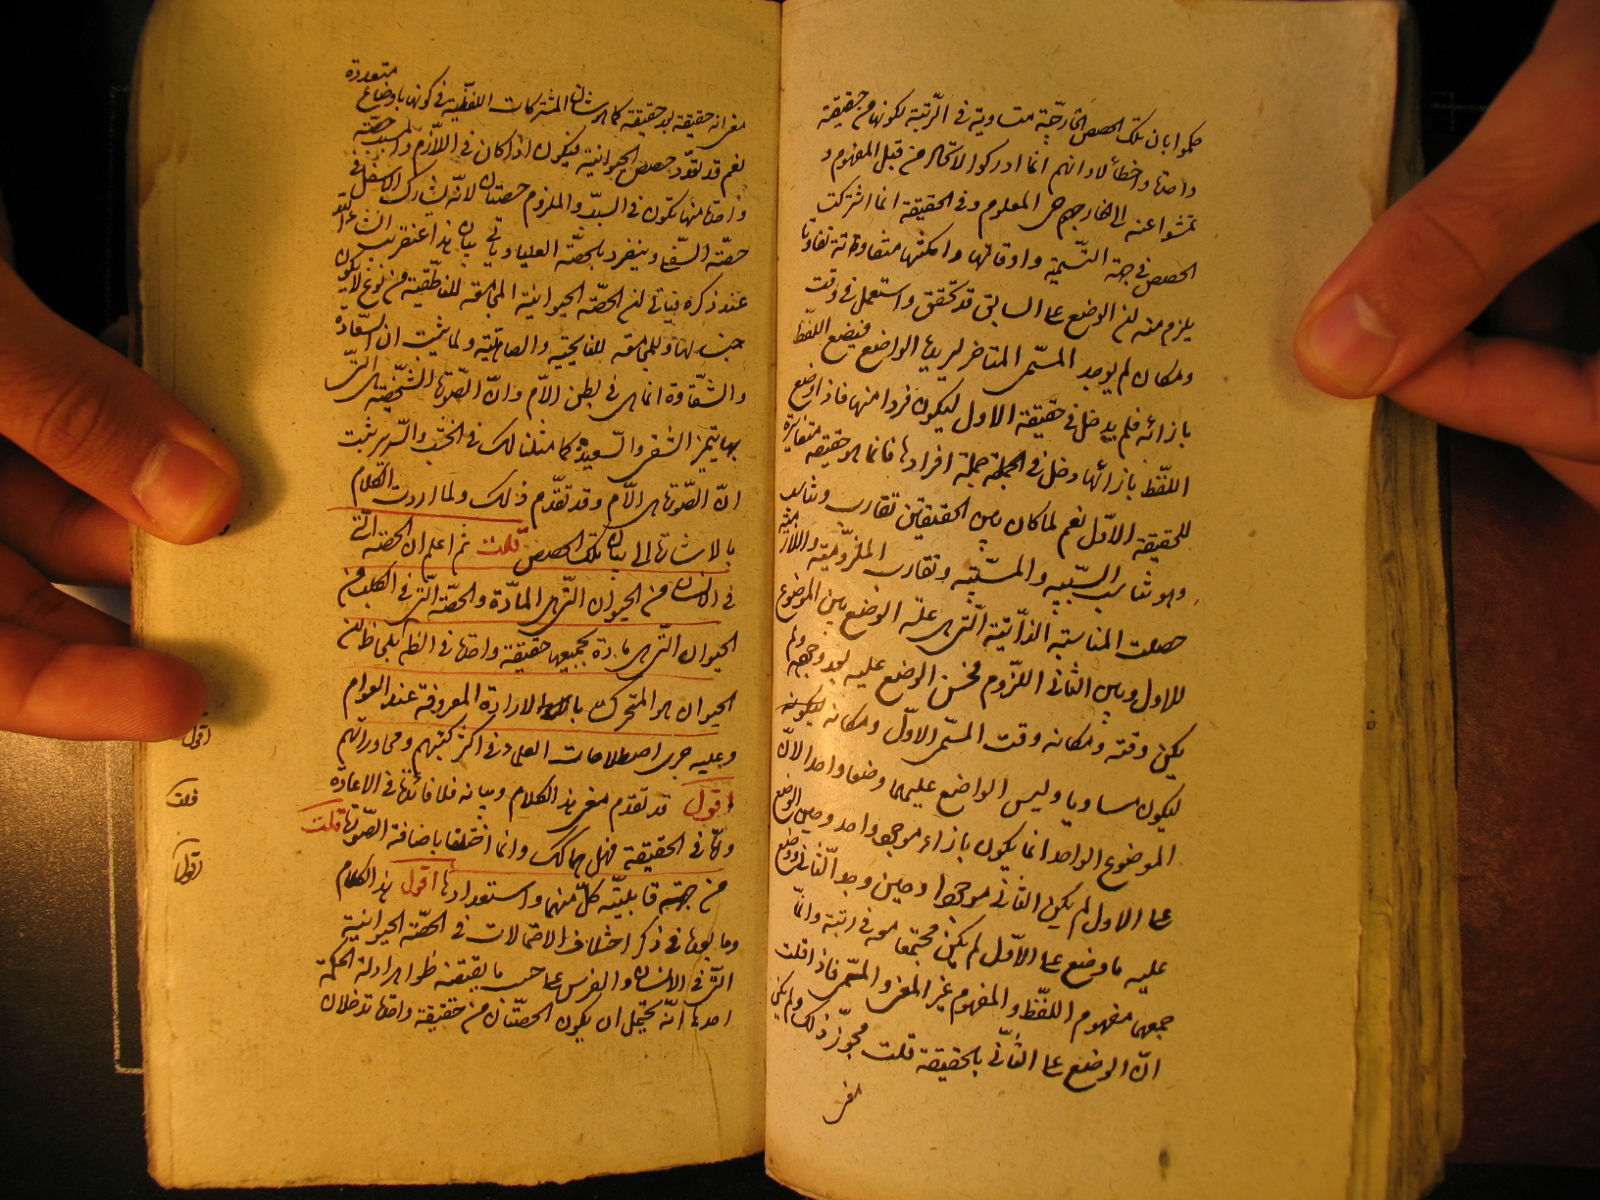 حكموا بان تلك الحصص الخارجية متساوية في الرتبة لكونها من حقيقة
واحدة واخطأوا لانهم انما ادركوا الاتحاد من قبل المفهوم و
في الحقيقة انما اشتركت
الحصص في جهة التسمية واوقاتها وامكنتها متفاوتة تفاوتا
يلزم منه لان الوضع على السابق قد تحقق واستعمل في وقت
ومكان لم يوجد المسمى المتاخر الواضع فيضع اللفظ
بازائه فلم يدخل في حقيقة الاول ليكون فردا منها فاذا وضع
اللفظ بازائها دخل في الجملة جملة افرادها فانما هو حقيقة متغايرة
للحقيقة الاولى نعم لما كان بين الحقيقتين تقارب وتناسب
وهو تناسب السببية والمسببية وتقارب الملزومية واللازمية
حصلت المناسبة الذاتية التي هي علة الوضع بين الموضوع
للاول وبين الثاني اللزوم فحسن الوضع عليه بعد وجوده ولم
يكن وقته ومكانه وقت المسمى الاول ومكانه
ليكون مساويا وليس الواضع عليهما وضعا واحدا لان
الموضوع الواحد انما يكون بازاء موجود واحد وحين الوضع
على الاول لم يكن الثاني موجودا وحين وجد الثاني ووضع
عليه ما وضع على الاول لم يكن مجتمعا معه في رتبة وانما
جمعهما مفهوم اللفظ والمفهوم غير المعنى والمسمى فاذا قلت
ان الوضع على الثاني بالحقيقة قلت نجوز ذلك ولم يكن
معنى
معنى انه حقيقة بعد حقيقة كما هو شان المشتركات اللفظية في كونها باوضاع متعددة
نعم قد تعدد حصص الحيوانية فيكون اذا كان في اللازم والمسبب حصة
واحدة منها تكون في السبب والملزوم حصتان لانه يشارك الاسفل في
حصته السفلى وينفرد بالحصة العليا وياتي بيان هذا عن قريب ان شاء الله
عند ذكره بياني لان الحصة الحيوانية للناطقية من نوع لا يكون
ولما ثبت ان السعادة
والشقاوة انما هي في بطن الام وان الصورة الشخصية هي التي
بها يتميز الشقي والسعيد كما مثلنا لك في الخشب والسرير ثبت
ان الصورة هي الام وقد تقدم ذلك ولما اردت الكلام
بالاشارة الى بيان تلك الحصص قلت ثم اعلم ان الحصة التي
في الانسان من الحيوان التي هي المادة والحصة التي في الكلب من
الحيوان التي هي مادة بجميعها حقيقة واحدة في الظاهر بلحاظ ان
الحيوان هو المتحرك بالارادة المعروفة عند العوام
وعليه جرى اصطلاحات العلماء في اكثر كتبهم ومحاوراتهم
اقول قد تقدم معنى هذا الكلام وبيانه فلا فائدة في الاعادة
قلت
من جهة قابلية كل منهما واستعدادها اقول هذا الكلام
وما بعدها في ذكر اختلاف الاحتمالات في الحصة الحيوانية
التي في الانسان والفرس على حسب ما يقتضيه ظواهر ادلة الحكمة
احدها انه يحتمل ان يكون الحصتان من حقيقة واحدة تدخلان
اقول
قلت
اقول